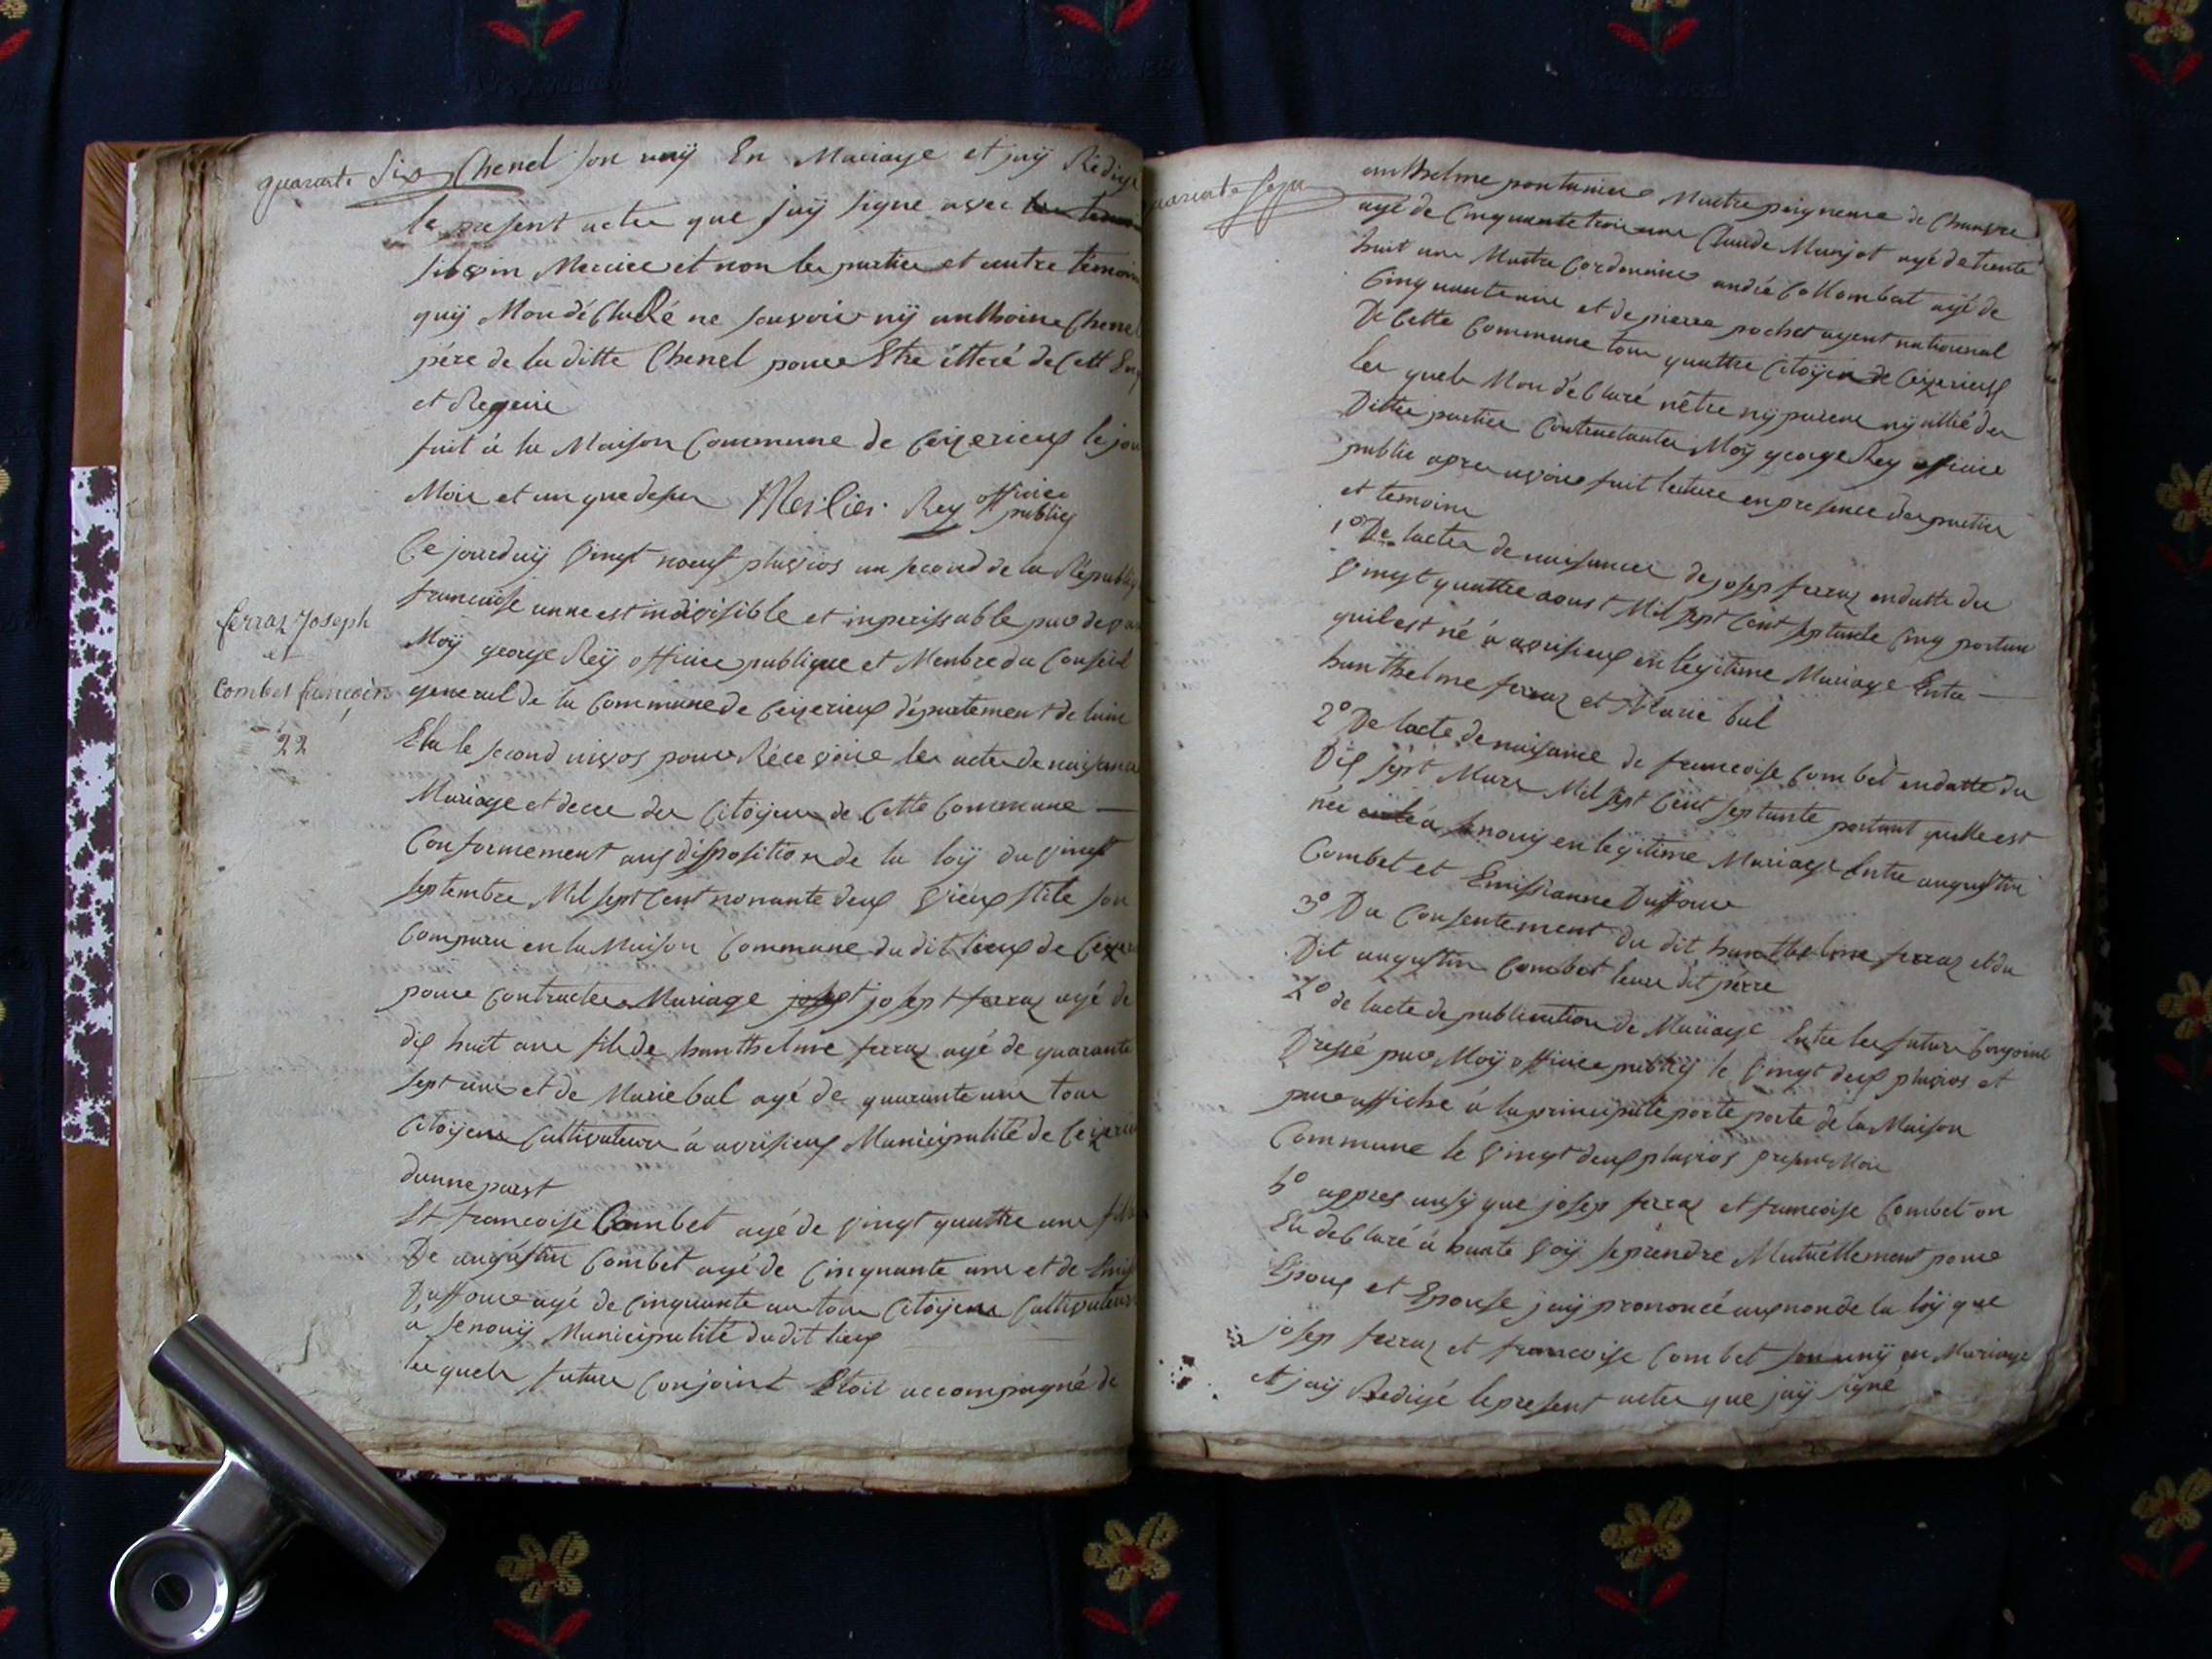 quarante Six
Chenel son unÿ En Mariage et jaÿ Rédigé
le present acte que jaÿ signe avec
silvin Mercier et non les parties et autre témoin
quÿ Mon déClaRé ne scavoir nÿ anthoine Chenel
père de la ditte Chenel pour Etre itteré de Cett
et Requis
fait à la Maison Commune de Ceizerieux le jour
Mois et an que desus Mercier Rey officier
publiq
ferraz Joseph
et
Combet francoise
22
Ce jourduÿ vingt noeuf pluvios an second de la Républiq
francoise unne est indivisible et inperissable par devan
Moÿ george Reÿ officier publique et Menbre du Conseil
general de la Commune de Ceizerieux département de lain
Elu le second nivos pour Récevoir les acte de naisance
Mariage et deces des Citöyens de Cette Commune
Conformement aux disposition de la loÿ du vingt
septembre Mil sept Cent nonante deux vieux stile son
Comparu en la Maison Commune du dit lieux de Ceizer
pour contracter Mariage josept josept ferraz agé de
dix huit ans fils de hanthelme ferraz agé de quarante
sept ans et de Marie bal agé de quarante ans tous
Citöyens Cultivateurs à avrisieux Municipalité de Ceizeri
dunne parst
Et francoise Combet agé de vingt quattre ans fille
De augustin Combet agé de Cinquante ans et de Emis
Duffour agé de Cinquante ans tous Citöyens Cultivateurs
à senouÿ Municipalité du dit lieux
les quels future Conjoint Etoit accompagné de
quarante Sept
anthelme pontanier Maitre peigneur de Chanvre
agé de Cinquante trois ans Claude Marjot agé de trente
huit ans Maitre Cordonnier andré Collombat agé de
Cinquante ans et de pierre pochet agent nationnal
De Cette Commune tous quattre Citöyens de Ceizerieux
les quels Mon déClaré nêtre nÿ parens nÿ allié des
Dittes parties Contractantes Moÿ george Rey officier
public apres avoir fait lecture en presence des parties
et temoins
1° De lacte de naisance de josep ferraz en datte du
vingt quattre aoust Mil sept Cent septante Cinq portant
quil est né à avrisieux en legitime Mariage Entre
hanthelme ferraz et Marie bal
2° De lacte de naisance de francoise Combet en datte du
Dix sept Mars Mil sept Cent septante portant quelle est
née à senouÿ en legitime Mariage Entre augustin
Combet et Emissianne Duffour
3° Du Consentement du dit hanthelme ferraz et du
Dit augustin Combet leurs dit père
4° de lacte de publication de Mariage Entre les future Conjoint
Dressé par Moÿ officier publiq le vingt deux pluvios et
par affiché à la principalle porte porte de la Maison
Commune le vingt deux pluvios present Mois
5° appres ausÿ que josep ferraz et francoise Combet on
Eu deClaré à haute voÿ se prendre Mutuéllement pour
Epoux et Epouse jaÿ prononcé aux non de la loÿ que
josep ferraz et francoise Combet son unÿ en Mariage
et jaÿ Redigé le present acte que jaÿ signe